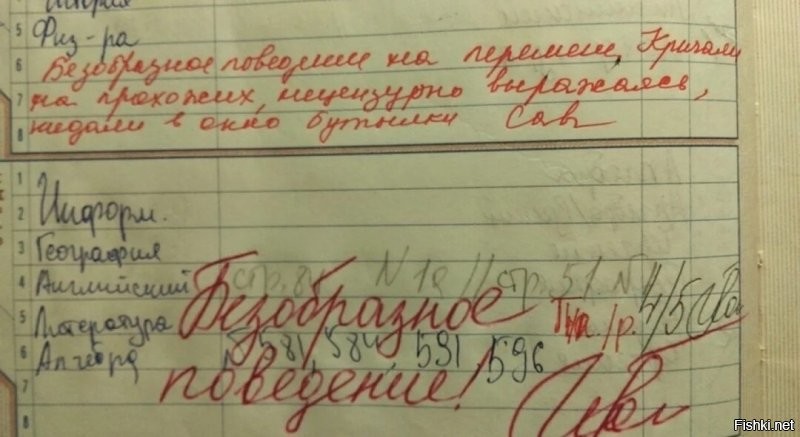 5 Физ-ра
6 Безобразное поведение на перемен, Кричали
7 на прохожих, нецензурно выражаясь,
8 кидали в окно бутылки Сав
1
2 Информ.
3 География
4 Английский стр. 84 N 1a // стр 51 N
5 Литература Безобразное /р. 4/5
6 Алгебра 581, 584, 591 596
7 поведение!
8
Fishki.net